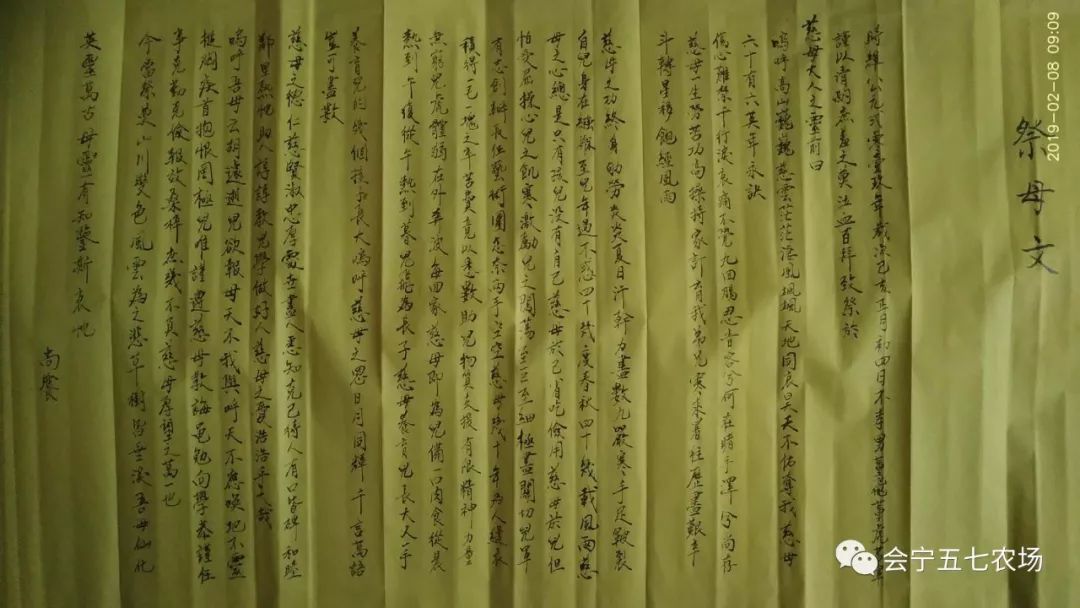 祭母文
時維公元弍零壹玖年歲次己亥正月初四日不孝男
謹以清酌庶羞之奠泣血百拜致祭於
慈母大人之靈前曰
嗚呼高山巍巍慈雲茫茫淫風颯颯天地同哀昊天天不佑奪我慈母
六十有六英年永訣
傷心離祭千行淚哀痛不覺九回腸忍音容兮何在睹手澤兮尚存
慈母一生勞苦功高操持家計育我弟兄寒來暑往歷盡艱辛
斗轉星移飽經風雨
慈母之功終身劬勞炎炎夏日汗幹力盡數九嚴寒手足皸裂
自兒身在襁褓至兒年過不惑四十幾度春秋四十幾載風雨慈
母之心總是只有孩兒沒有自己慈母於己省吃儉用慈母於兒但
怕受屈操心兒之飢寒激勵兒之闖蕩至巨至細極盡關切兒早
有志創辦長征藝術團怎奈兩手空空慈母幾十年為人縫衣
積得己一塊之辛苦費竟以悉數助兒物質支援有限精神力量
無窮兒虎體彌在外奔波每回家慈母即為兒備一口肉食從晨
熱到午後從午熱到暮兒飛為長子慈母養育兒長大人手
養育兒的幾個孩子長大嗚呼慈母之恩日月同輝千言萬語
豈可盡數
慈母之德仁慈賢淑忠厚處世盡人悉知克己待人有口皆碑和睦
鄰里熱忱助人諄諄教兒學做好人慈母之愛浩浩乎大哉
嗚呼吾母云胡遽逝兒欲報母天不我與呼天不應喚地不靈
搥胸疾首抱恨罔極兒唯謹遵慈母教誨黽勉向學恭謹任
事克勤克儉報效桑梓庶幾不負慈母厚望之萬一也
今當祭奠山川變色風雲為之悲草樹皆垂淚吾母仙化
英靈萬古母靈有知鑒斯哀忱
尚饗
2019-02-08 09:09
会宁五七农场